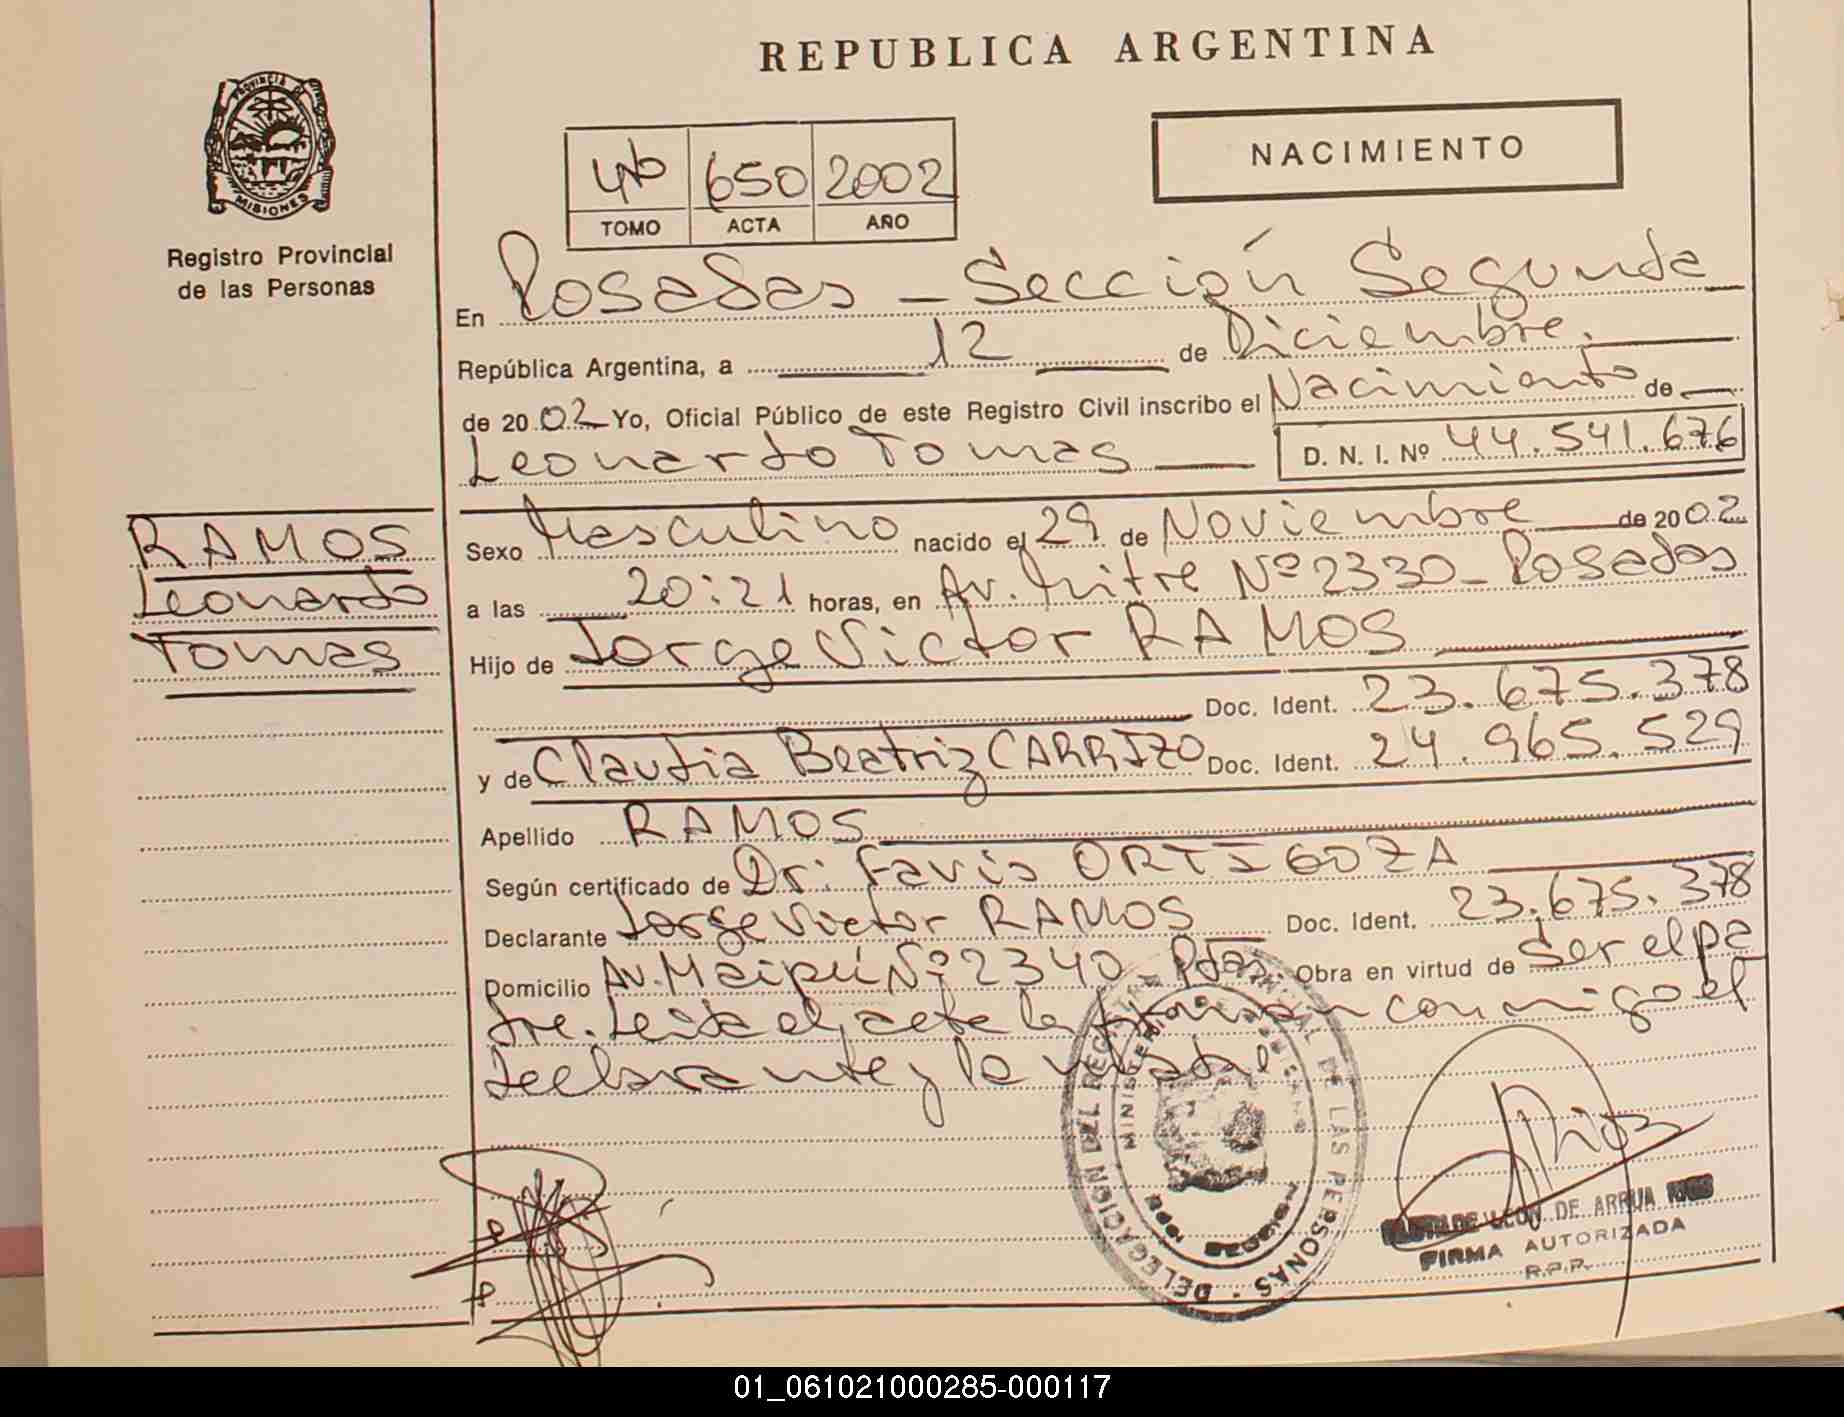 REPUBLICA ARGENTINA
PROVINCIA DE
MISIONES
Registro Provincial
de las Personas
NACIMIENTO
650 2002
TOMO ACTA AÑO
En Posadas – Sección Segunda
República Argentina, a 12 de Diciembre.
de 2002 Yo, Oficial Público de este Registro Civil inscribo el Nacimiento de
Leonardo Tomas D. N. I. Nº 44.541.676
RAMOS
Leonardo
Tomas
Sexo Masculino nacido el 29 de Noviembre de 2002
a las 20:21 horas, en Av. Mitre Nº 2330 - Posadas
Hijo de Jorge Victor RAMOS
Doc. Ident. 23.675.378
y de Claudia Beatriz CARRIZO Doc. Ident. 24.965.529
Apellido RAMOS
Según certificado de Dr. Favio ORTIGOZA
Declarante Jorge Victor RAMOS Doc. Ident. 23.675.378
Domicilio Av. Maipú Nº 2340 - Pdas. Obra en virtud de Ser el pa
dre. Leida el acta la firman conmigo el
declarante y la madre
DELEGACION DEL REGISTRO PROVINCIAL DE LAS PERSONAS
MINISTERIO DE GOBIERNO
MISIONES
LEON DE ARRUA RIOS
FIRMA AUTORIZADA
R.P.P.
01_061021000285-000117